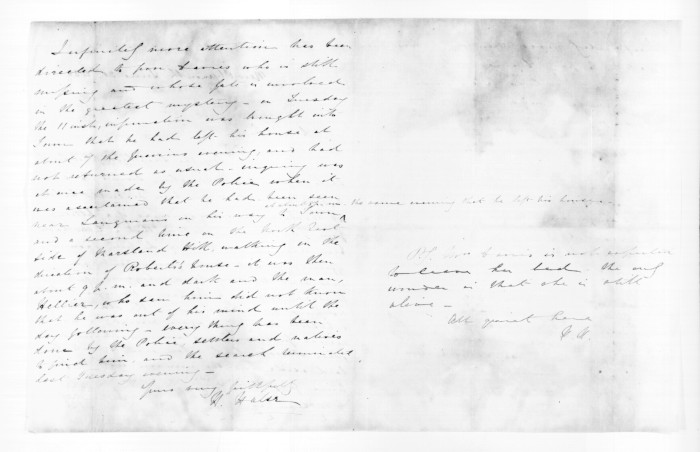 more attention has been
directed to poor Carnes who is still
missing and whose fate is involved
in the greatest mystery - on Tuesday
the 11 inst, information was brought into
Town that he had left his house at
about 7 the previous evening, and had
not returned as usual - inquiry was
at once made by the Police when it
was ascertained that he had been seen
the same evening that he left his house
near on his way to Town
and a second time on the North East
side of Marsland Hill, walking in the
direction of house - it was then
about 9 p.m. and dark and the man,
Hellier, who saw him did not know
that he was out of his mind until the
day following - everything has been
done by the Police, settlers and natives
to find him and the search
last Tuesday evening -
Yours very faithfully
H. Halse
PS. Mrs Carnes is not expected
to leave her bed. The only
wonder is that she is still
alive -
All quiet here
H H